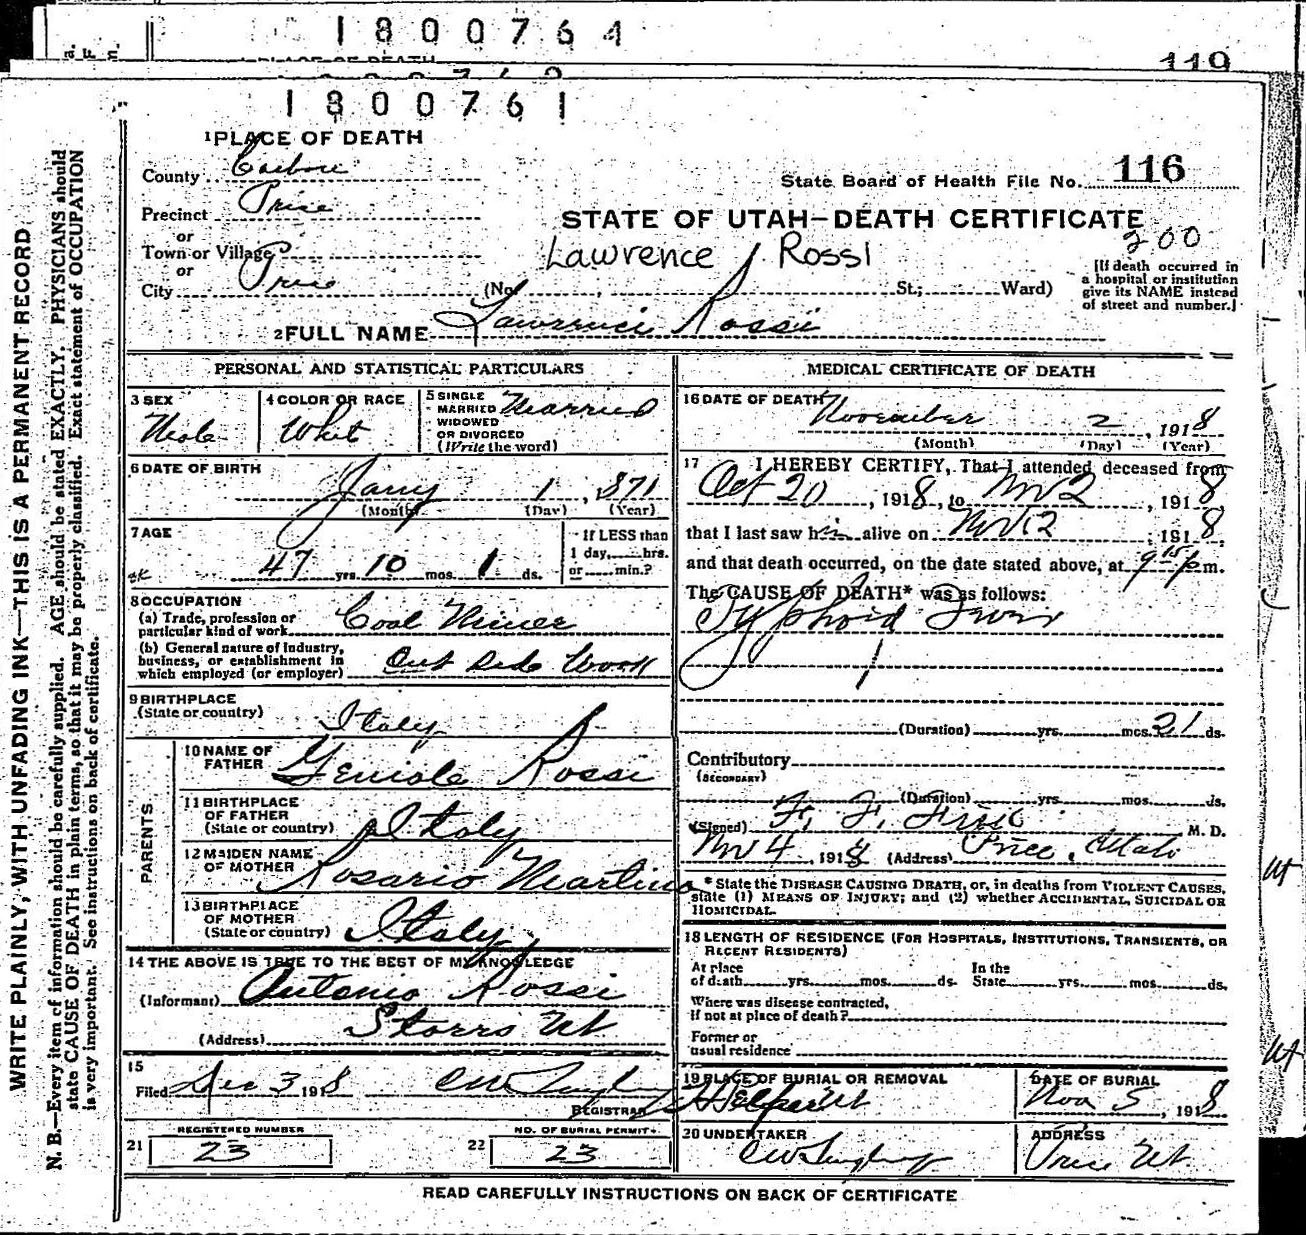 1800764
119
1800761
1 PLACE OF DEATH
County Carbon
Precinct Price
or
Town or Village
or
City Price
State Board of Health File No. 116
STATE OF UTAH—DEATH CERTIFICATE
200
Lawrence J Rossi
(No. , St.; Ward)
[If death occurred in
a hospital or institution
give its NAME instead
of street and number.]
2 FULL NAME Lawrence Rossi
PERSONAL AND STATISTICAL PARTICULARS
3 SEX
Male
4 COLOR OR RACE
Whit
5 SINGLE
MARRIED
WIDOWED
OR DIVORCED
(Write the word)
Married
6 DATE OF BIRTH
Jany 1, 1871
(Month) (Day) (Year)
7 AGE
47 yrs. 10 mos. 1 ds.
If LESS than
1 day, hrs.
or min.?
8 OCCUPATION
(a) Trade, profession or
particular kind of work Coal Miner
(b) General nature of Industry,
business, or establishment in
which employed (or employer) Out Side Work
9 BIRTHPLACE
(State or country) Italy
PARENTS
10 NAME OF
FATHER Rossi
11 BIRTHPLACE
OF FATHER
(State or country) Italy
12 MAIDEN NAME
OF MOTHER Rosario Martino
13 BIRTHPLACE
OF MOTHER
(State or country) Italy
14 THE ABOVE IS TRUE TO THE BEST OF MY KNOWLEDGE
(Informant) Antonio Rossi
(Address) Storrs Ut
15
Filed Dec 3 1918
REGISTRAR
REGISTERED NUMBER
21 23
NO. OF BURIAL PERMIT
22 23
MEDICAL CERTIFICATE OF DEATH
16 DATE OF DEATH
November 2, 1918
(Month) (Day) (Year)
17 I HEREBY CERTIFY, That I attended deceased from
Oct 20, 1918, to Nov 2, 1918
that I last saw him alive on Nov 2, 1918,
and that death occurred, on the date stated above, at 9 15 p m.
The CAUSE OF DEATH* was as follows:
Typhoid Fever
(Duration) yrs. mos. 21 ds.
Contributory
(SECONDARY)
(Duration) yrs. mos. ds.
(Signed) F. F. M. D.
Nov 4, 1918 (Address) Price, Utah
* State the DISEASE CAUSING DEATH, or, in deaths from VIOLENT CAUSES,
state (1) MEANS OF INJURY; and (2) whether ACCIDENTAL, SUICIDAL OR
HOMICIDAL.
18 LENGTH OF RESIDENCE (FOR HOSPITALS, INSTITUTIONS, TRANSIENTS, OR
RECENT RESIDENTS)
At place In the
of death yrs. mos. ds. State yrs. mos. ds.
Where was disease contracted,
if not at place of death?
Former or
usual residence
19 PLACE OF BURIAL OR REMOVAL
Helper Ut
DATE OF BURIAL
Nov 5, 1918
20 UNDERTAKER
ADDRESS
Price Ut
READ CAREFULLY INSTRUCTIONS ON BACK OF CERTIFICATE
WRITE PLAINLY, WITH UNFADING INK—THIS IS A PERMANENT RECORD
N. B.—Every item of information should be carefully supplied. AGE should be stated EXACTLY. PHYSICIANS should
state CAUSE OF DEATH in plain terms, so that it may be properly classified. Exact statement of OCCUPATION
is very important. See instructions on back of certificate.
ut
ut